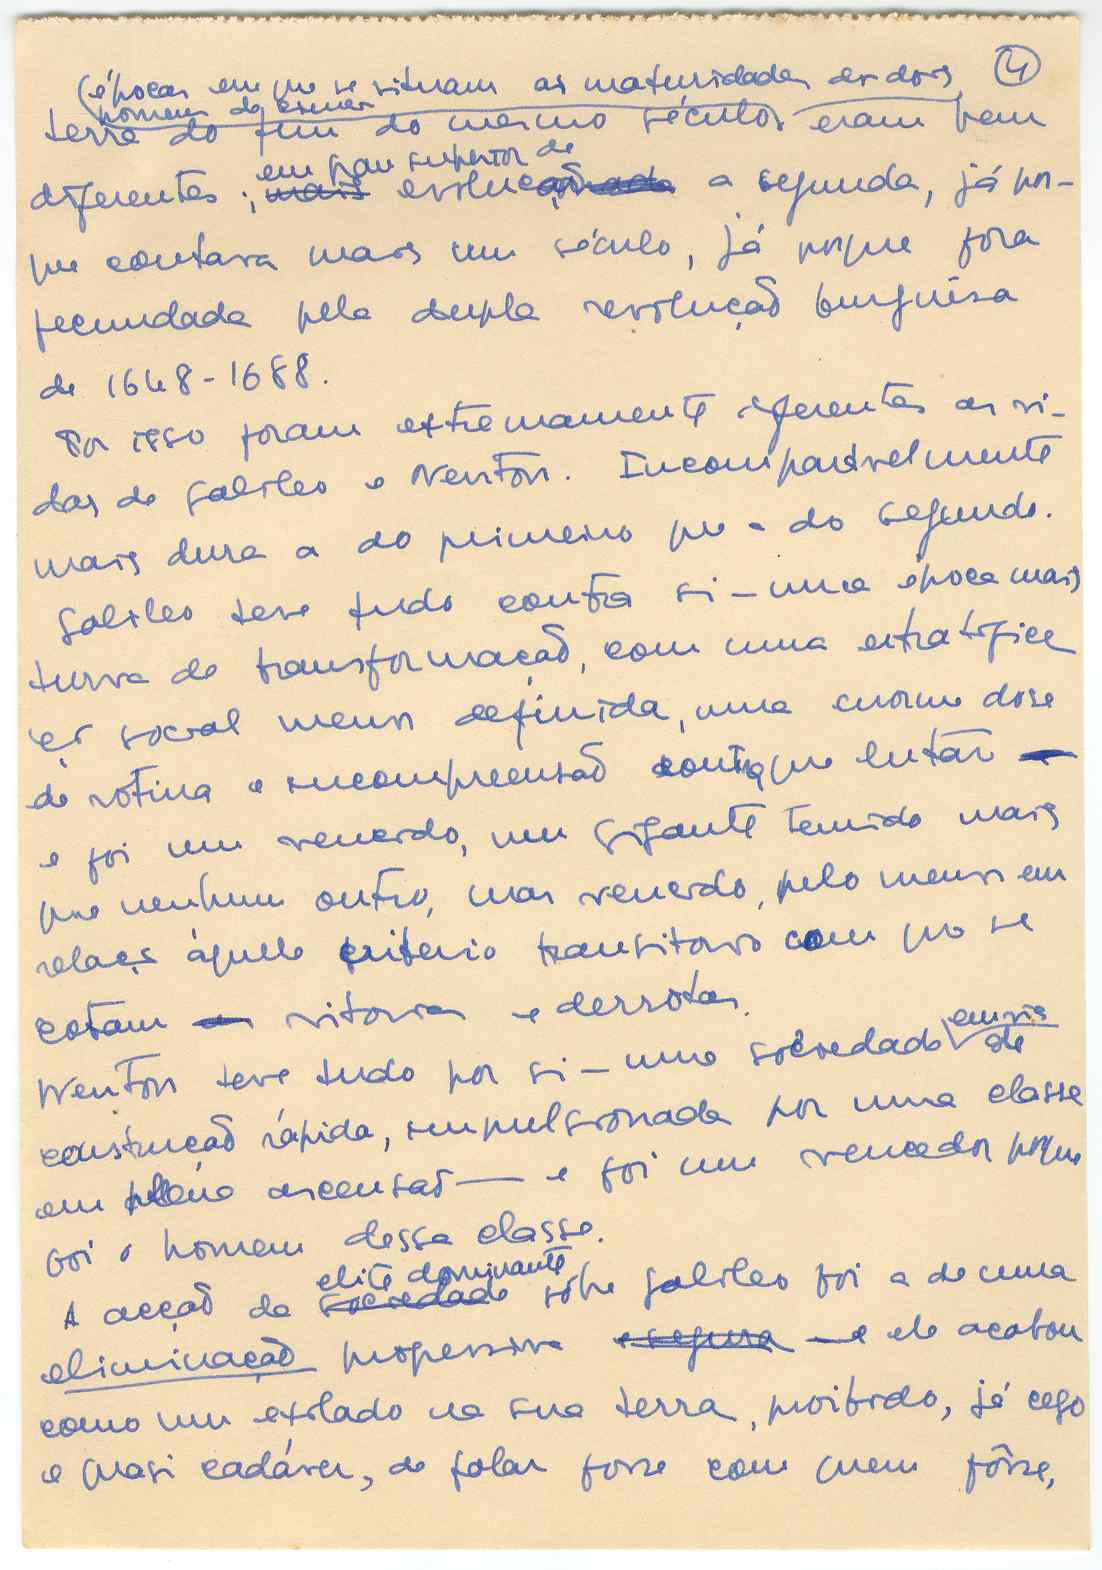 4
(épocas em que se situam as maturidades dos dois
homens de
terra do fim do mesmo século) eram bem
em grau superior de
diferentes; mais evolução a segunda, já por-
que contava mais um século, já porque fora
fecundada pela dupla revolução burguêsa
de 1648-1688.
Por isso foram extremamente diferentes as vi-
das de Galileo e Newton. Incomparàvelmente
mais dura a do primeiro que a do segundo.
Galileo teve tudo contra si – uma época mais
turva de transformação, com uma estratifica
ção social menos definida, uma enorme dose
de rotina e incompreensão contra que lutar
e foi um vencido, um gigante temido mais
que nenhum outro, mas vencido, pelo menos em
relação àquele critério transitorio com que se
cotam vitorias e derrotas.
Newton teve tudo por si – uma sociedade em vias de
construção rápida, impulsionada por uma classe
em plena ascensão — e foi um vencedor porque
foi o homem dessa classe.
elite dominante
A acção da sociedade sôbre Galileo foi a de uma
eliminação progressiva e segura — e ele acabou
como um exilado na sua terra, proibido, já cego
e quasi cadáver, de falar fosse com quem fôsse,